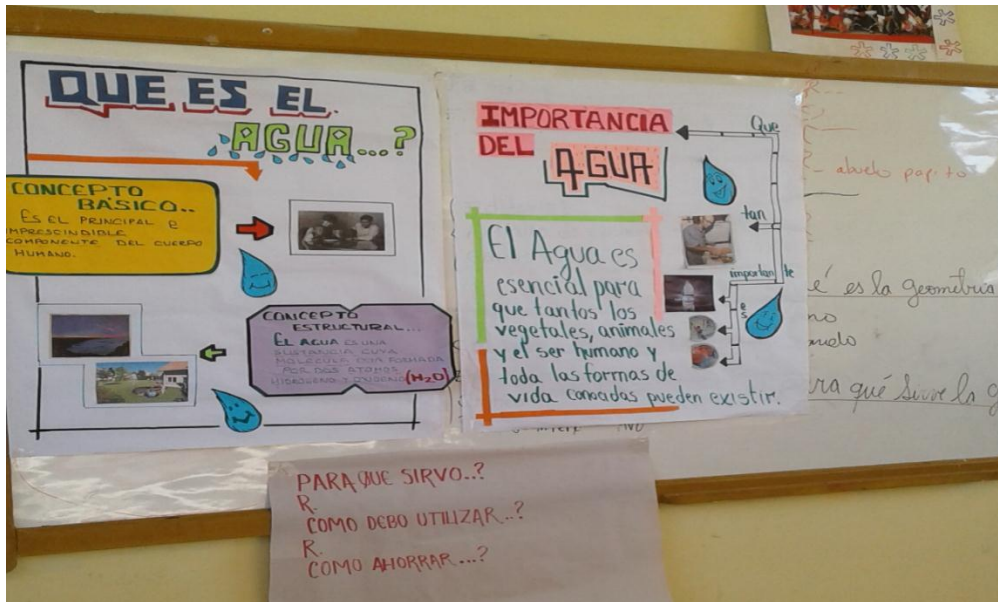 QUE ES EL
AGUA...?
CONCEPTO
BÁSICO..
ES EL PRINCIPAL E
IMPRESCINDIBLE
COMPONENTE DEL CUERPO
HUMANO.
CONCEPTO
ESTRUCTURAL...
EL AGUA ES UNA
SUSTANCIA CUYA
MOLÉCULA
POR DOS ATOMOS
HIDROGENO Y OXIGENO (H2O)
IMPORTANCIA
DEL
AGUA
Que
tan
importante
es
El Agua es
esencial para
que tantos los
vegetales, animales
y el ser humano y
toda las formas de
vida conocadas pueden existir.
PARA QUE SIRVO..?
R.
COMO DEBO UTILIZAR..?
R.
COMO AHORRAR...?
abuelo papito
é es la geometria
no
ra qué sirve la g